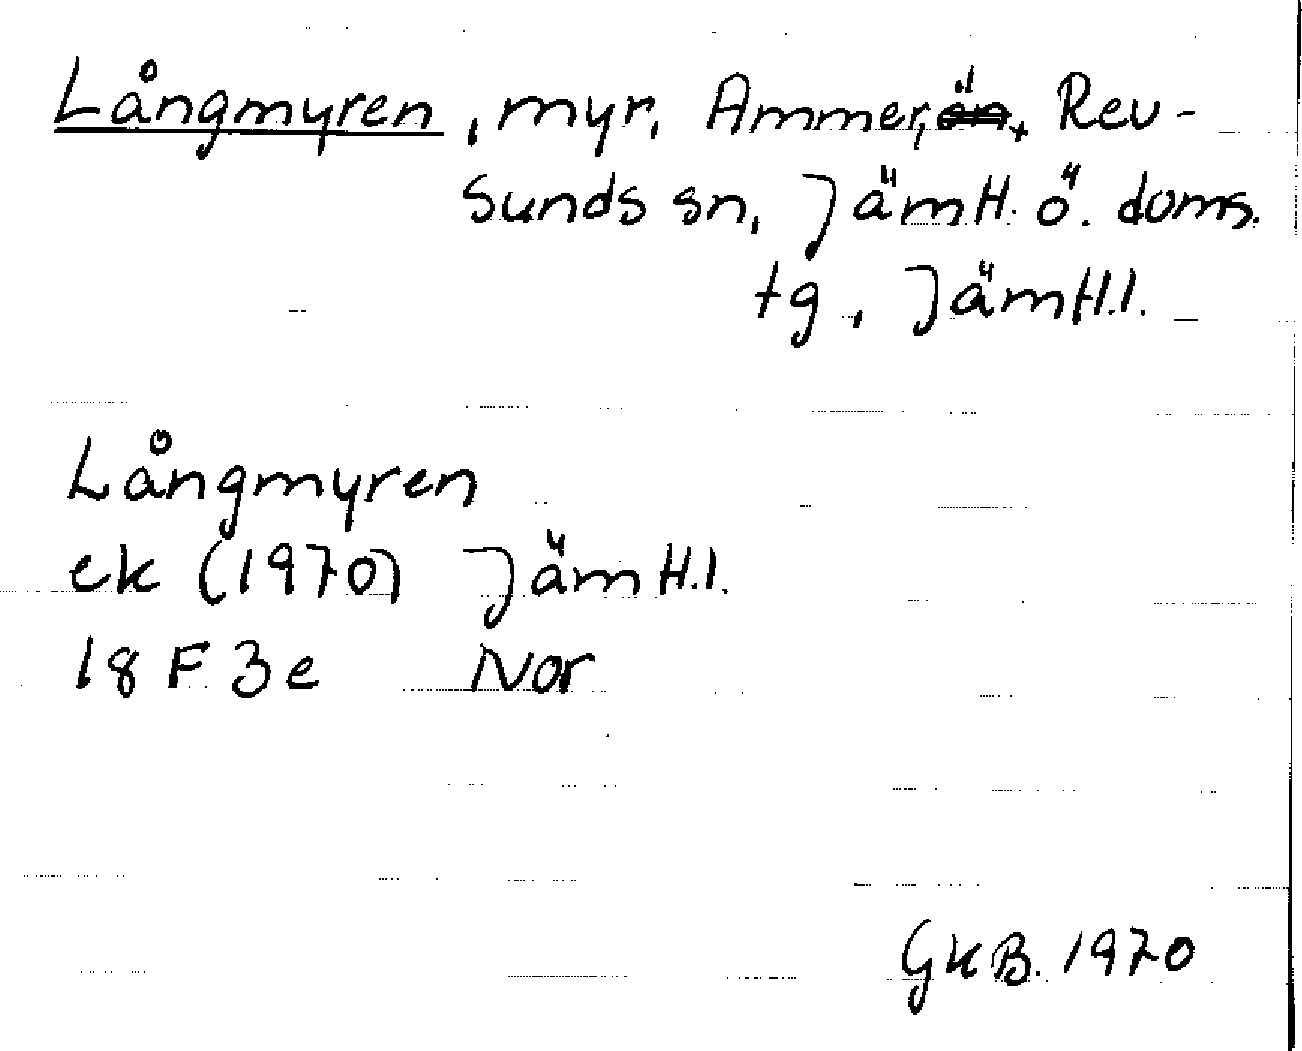 Långmyren, myr, Ammer, Rev-
sunds sn, Jämtl. ö. doms.
tg, Jämtl. l.
Långmyren
ek (1970) Jämtl. l.
18 F 3e Nor
GKB. 1970